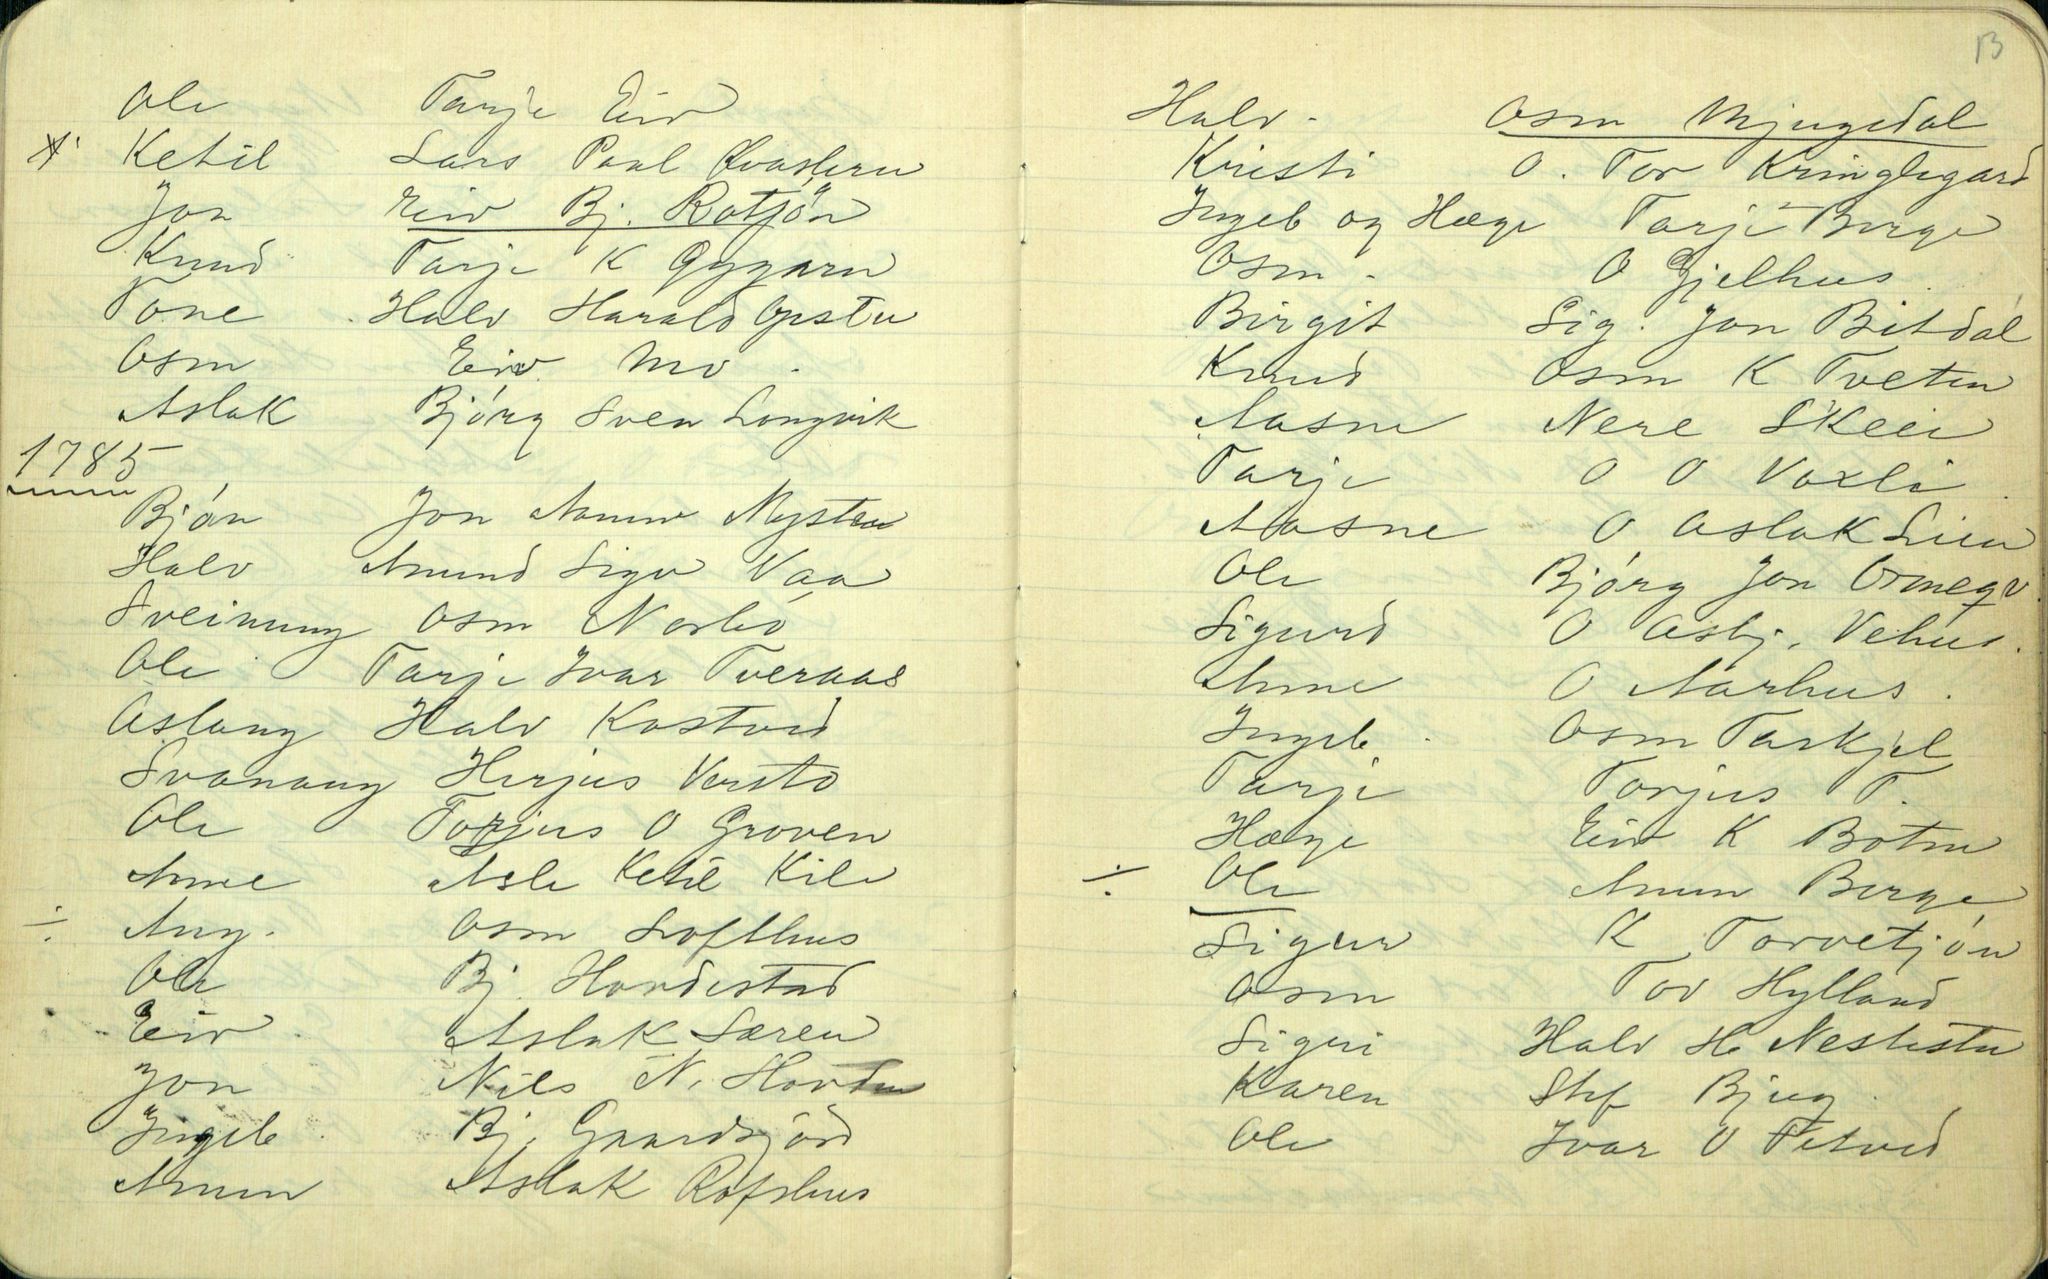 Ole Tarje Eiv
Ketil Lars Paal Kvaslern
Jon Eiv Bj. Rotjón
Knud Tarje K Gygarn
Tone Halv Harald Opstu
Osm Eiv Mo
Aslak Bjórg Sven Longvik
1785
Bjón Jon Amun Nystu
Halv Amund Sigv Vaa
Sveinung Osm Norbó
Ole Tarje Ivar Tveraas
Aslaug Halv Kostvid
Svanaug Herjus Versto
Ole Torjus O Groven
Anne Asle Ketil Kile
÷ Aug. Osm Lofthus
Ole Bj Hordestad
Eiv Aslak Særen
Jon Nils N. Horden
Ingeb Bj. Gaardsjórd
Amun Aslak Rofshus
13
Halv. Osm Mjugedal
Kristi O. Tor Kringlegard
Ingeb og Hæge Tarje Berge
Osm. O Gjelhus
Birgit Sig. Jon Bitdal
Knud Osm K Tveten
Aasne Nere Skeie
Tarje O O Vaxli
Aasne O Aslak Lien
Ole Bjórg Jon Ormegr.
Sigurd O Asbj. Vehus.
Anne O Aarhus.
Ingeb. Osm Taskjel
Tarje Torjus T.
Hæge Eiv K Botnu
÷ Ole Amun Berge
Sigur K Torvetjón
Osm Tov Hylland
Siguri Halv H Neslestu
Karen Stef Bjug
Ole Ivar O Fetved